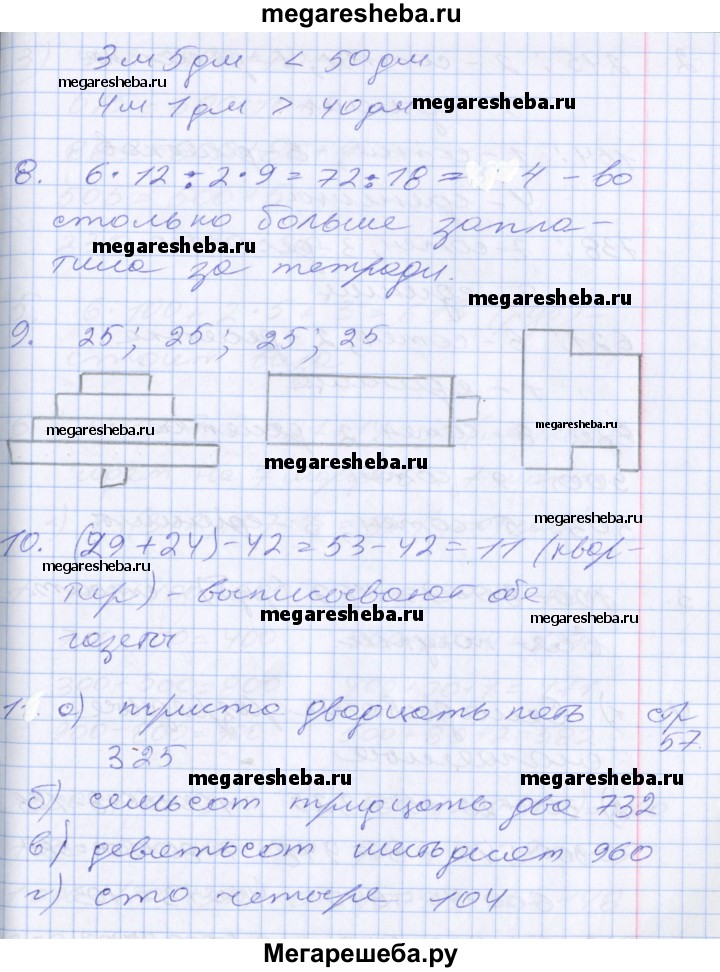 megaresheba.ru
3м 5дм < 50дм
megaresheba.ru
4м 1дм > 40дм megaresheba.ru
8. 6·12:2·9=72:18= 4 – во
столько больше запла-
megaresheba.ru
тила за тетради.
megaresheba.ru
9. 25; 25; 25; 25
megaresheba.ru
megaresheba.ru
megaresheba.ru
megaresheba.ru
10. (29+24)-42=53-42=11 (квар-
megaresheba.ru
тир) – выписывают обе
megaresheba.ru megaresheba.ru
газеты
11. а) триста двадцать пять стр
57.
325
megaresheba.ru megaresheba.ru
б) семьсот тридцать два 732
в) девятьсот шестьдесят 960
megaresheba.ru megaresheba.ru
г) сто четыре 104
Мегарешеба.ру